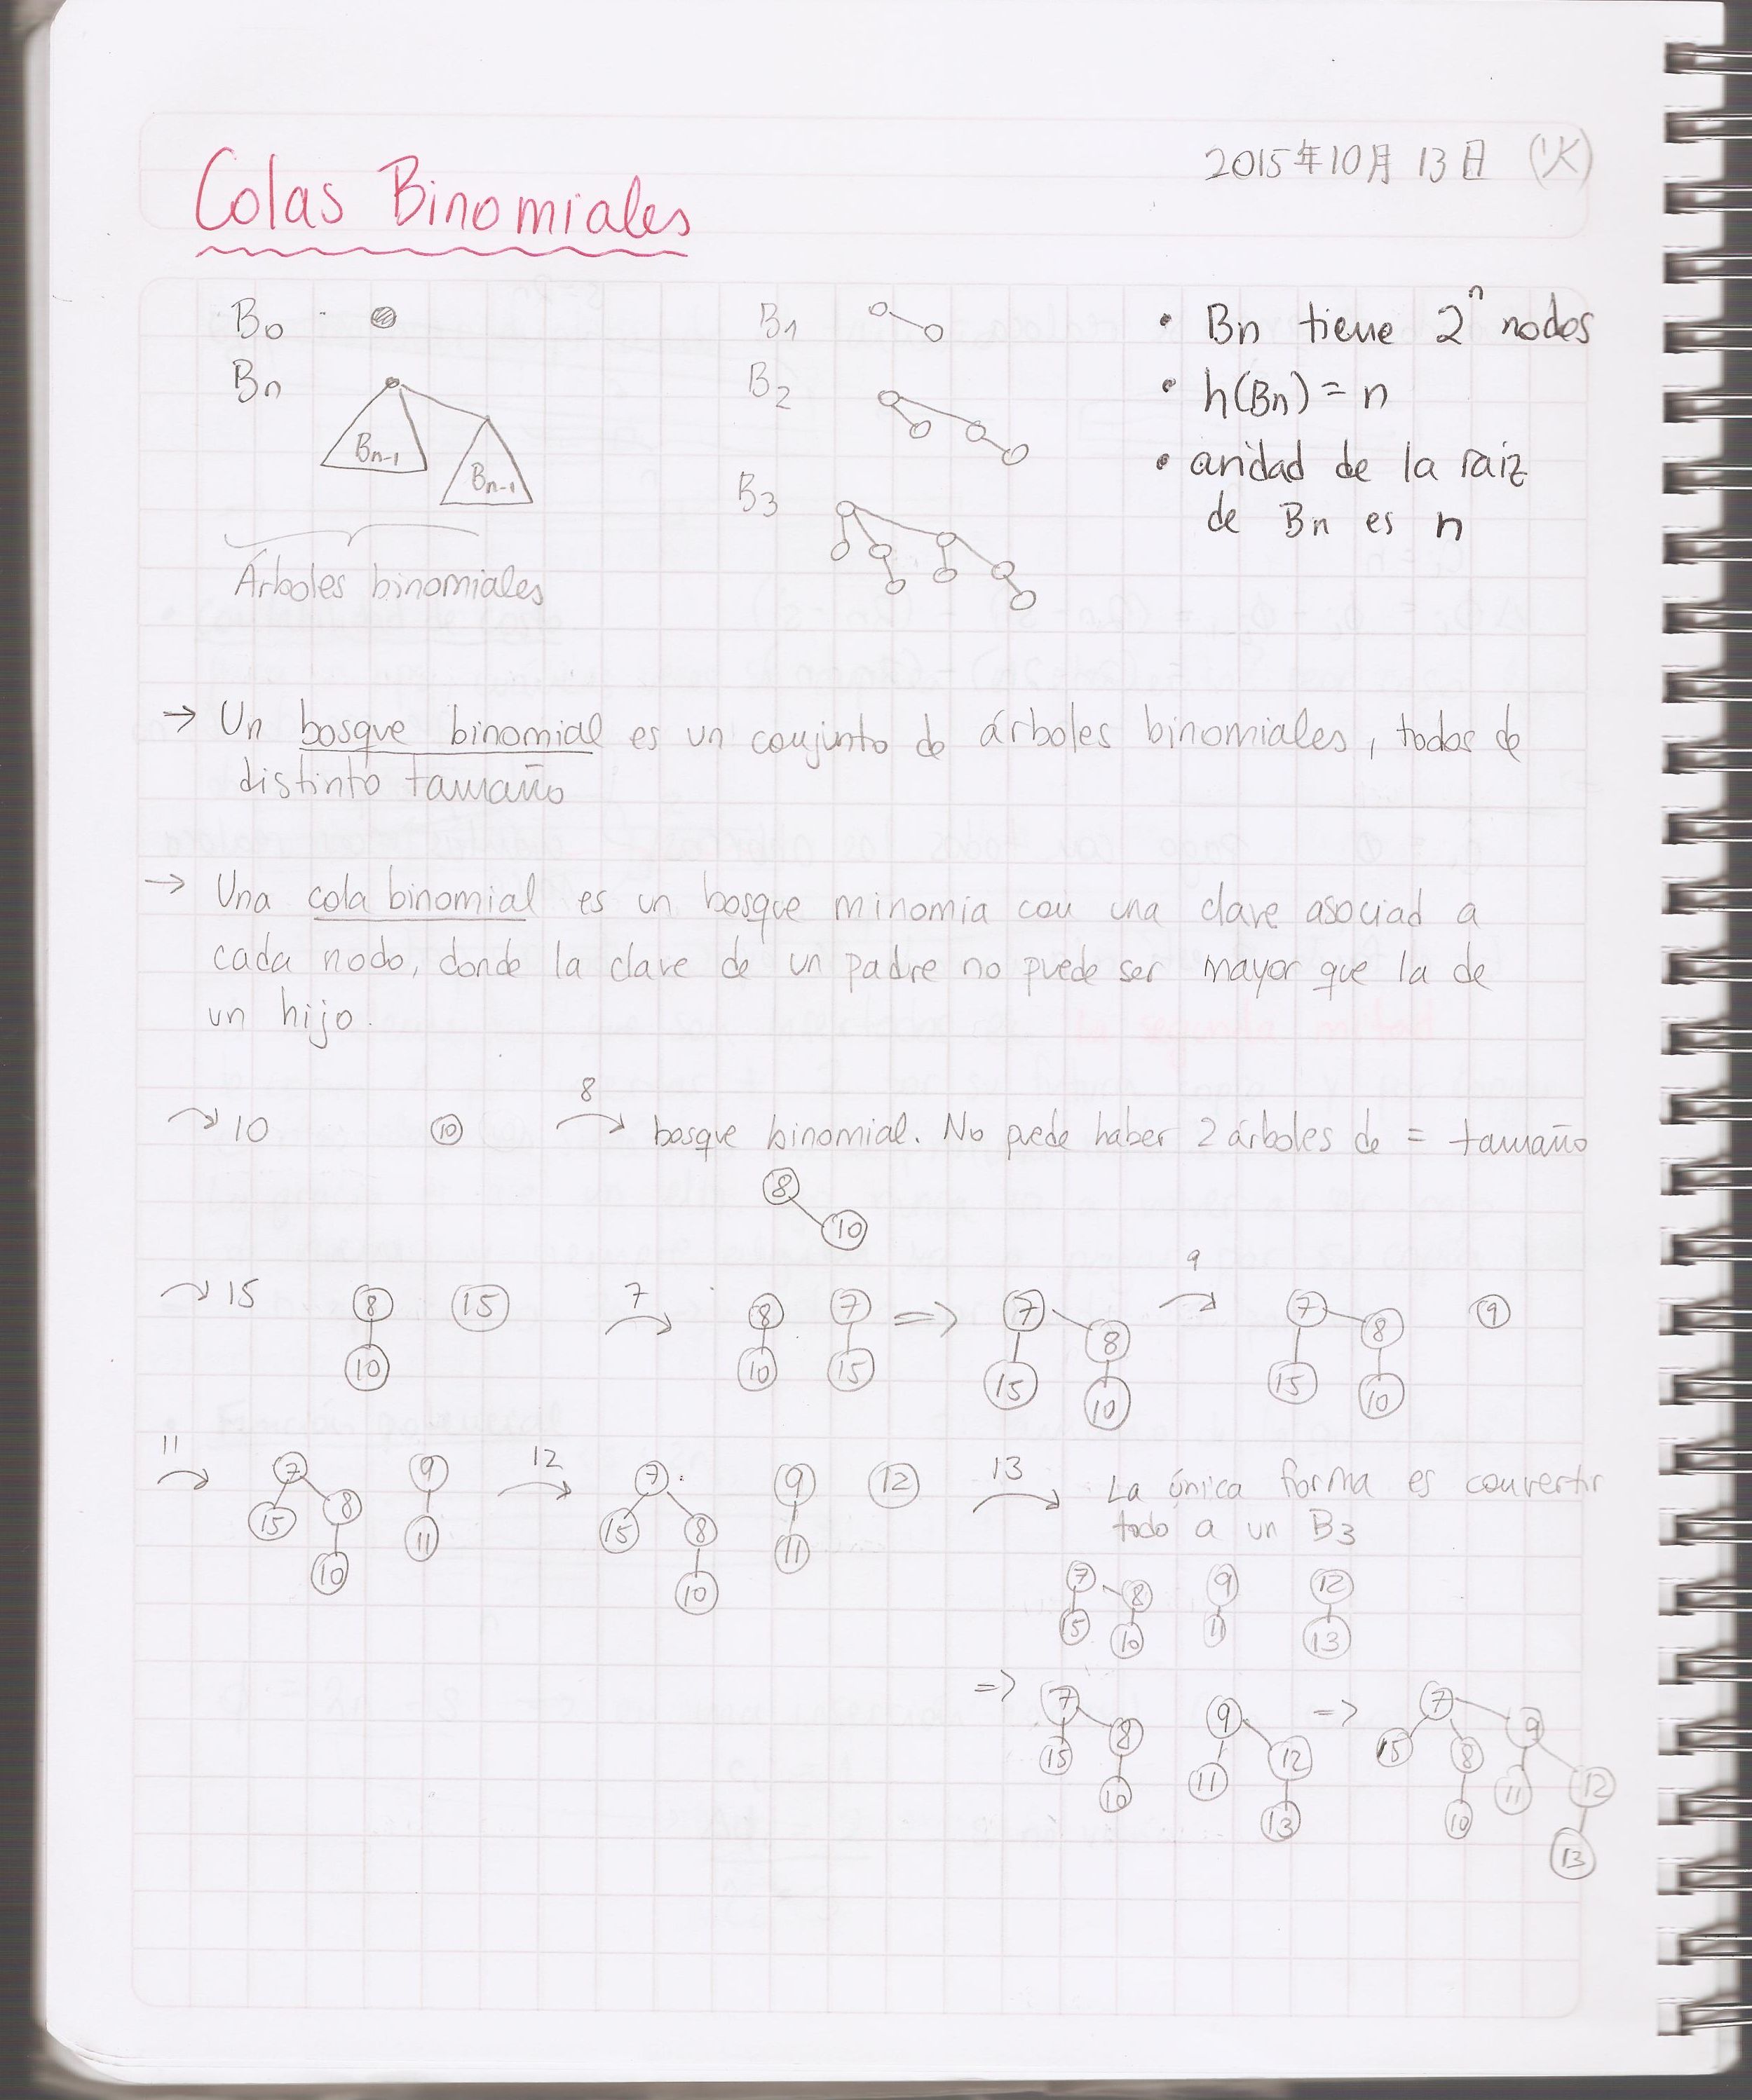 Colas Binomiales
2015年10月13日 (火)
B0
B1
Bn
Bn-1
Bn-1
B2
B3
Árboles binomiales
• Bn tiene 2^n nodos
• h(Bn) = n
• aridad de la raiz
de Bn es n
→ Un bosque binomial es un conjunto de árboles binomiales, todos de
distinto tamaño
→ Una cola binomial es un bosque minomia con una clave asociad a
cada nodo, donde la clave de un padre no puede ser mayor que la de
un hijo.
10 10 8 bosque binomial. No puede haber 2 árboles de = tamaño
8
10
15 8 15 7 8 7 => 7 8 9 7 8 9
10 10 15 15 10 15 10
11 7 9 12 7 9 12 13 La única forma es convertir
todo a un B3
15 8 11 15 8 11
10 10
7 8 9 12
15 10 11 13
=> 7 9 => 7 9
15 8 11 12 15 8 11 12
10 13 10 13